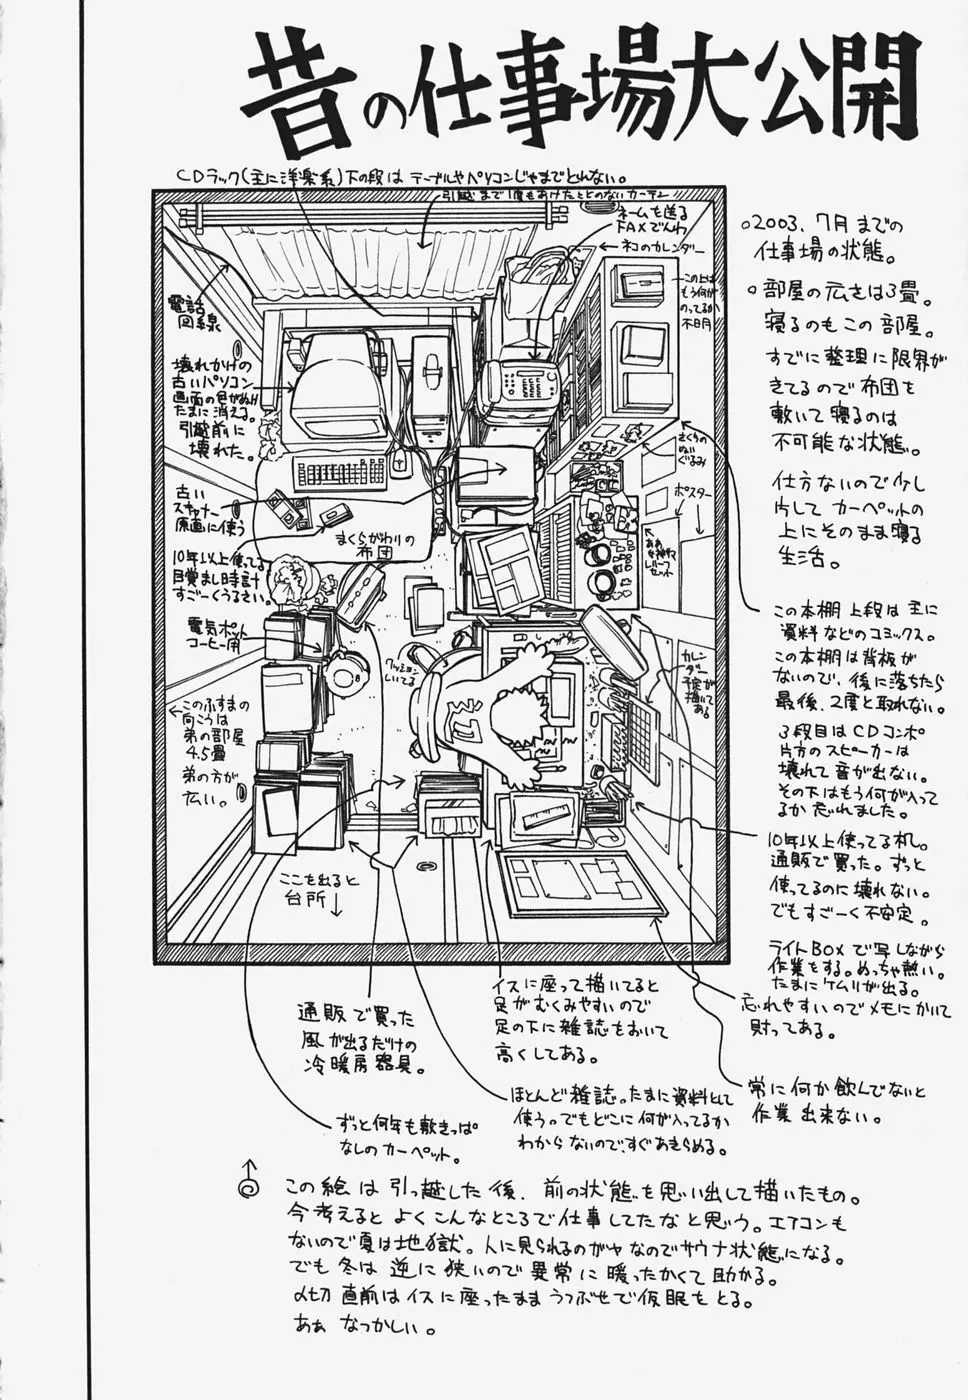 昔の仕事場大公開
CDラック(主に洋楽系)下の段はテーブルやパソコンじゃまでとれない。
引越まで1度もあけたことのないカーテン
ネームを送る
FAXでんわ
ネコのカレンダー
この上は
もう何が
のってるか
不明
電話
回線
壊れかけの
古いパソコン
画面の色がぬけ
たまに消える。
引越前に
壊れた。
さくらの
ぬいぐるみ
ポスター
古い
スキャナー
原画に使う
まくらがわりの
布団
10年以上使ってる
目覚まし時計
すごーくうるさい。
電気ポット
コーヒー用
クッション
しいてる
カレン
ダー
予定が
描いてある
このふすまの
向こうは
弟の部屋
4.5畳
弟の方が
広い。
ここを出ると
台所
○2003.7月までの
仕事場の状態。
○部屋の広さは3畳。
寝るのもこの部屋。
すでに整理に限界が
きてるので布団を
敷いて寝るのは
不可能な状態。
仕方ないので少し
片してカーペットの
上にそのまま寝る
生活。
この本棚上段は主に
資料などのコミックス。
この本棚は背板が
ないので、後に落ちたら
最後、2度と取れない。
3段目はCDコンポ
片方のスピーカーは
壊れて音が出ない。
その下はもう何が入って
るか忘れました。
10年以上使ってる机。
通販で買った。ずっと
使ってるのに壊れない。
でもすごーく不安定。
ライトBoxで写しながら
作業をする。めっちゃ熱い。
たまにケムリが出る。
忘れやすいのでメモにかいて
貼ってある。
常に何か飲んでないと
作業出来ない。
イスに座って描いてると
足がむくみやすいので
足の下に雑誌をおいて
高くしてある。
通販で買った
風が出るだけの
冷暖房器具。
ほとんど雑誌。たまに資料として
使う。でもどこに何が入ってるか
わからないので、すぐあきらめる。
ずっと何年も敷きっぱ
なしのカーペット。
この絵は引っ越した後、前の状態を思い出して描いたもの。
今考えるとよくこんなところで仕事してたなと思う。エアコンも
ないので夏は地獄。人に見られるのがヤなのでサウナ状態になる。
でも冬は逆に狭いので異常に暖ったかくて助かる。
〆切直前はイスに座ったままうつぶせで仮眠をとる。
あぁなつかしい。